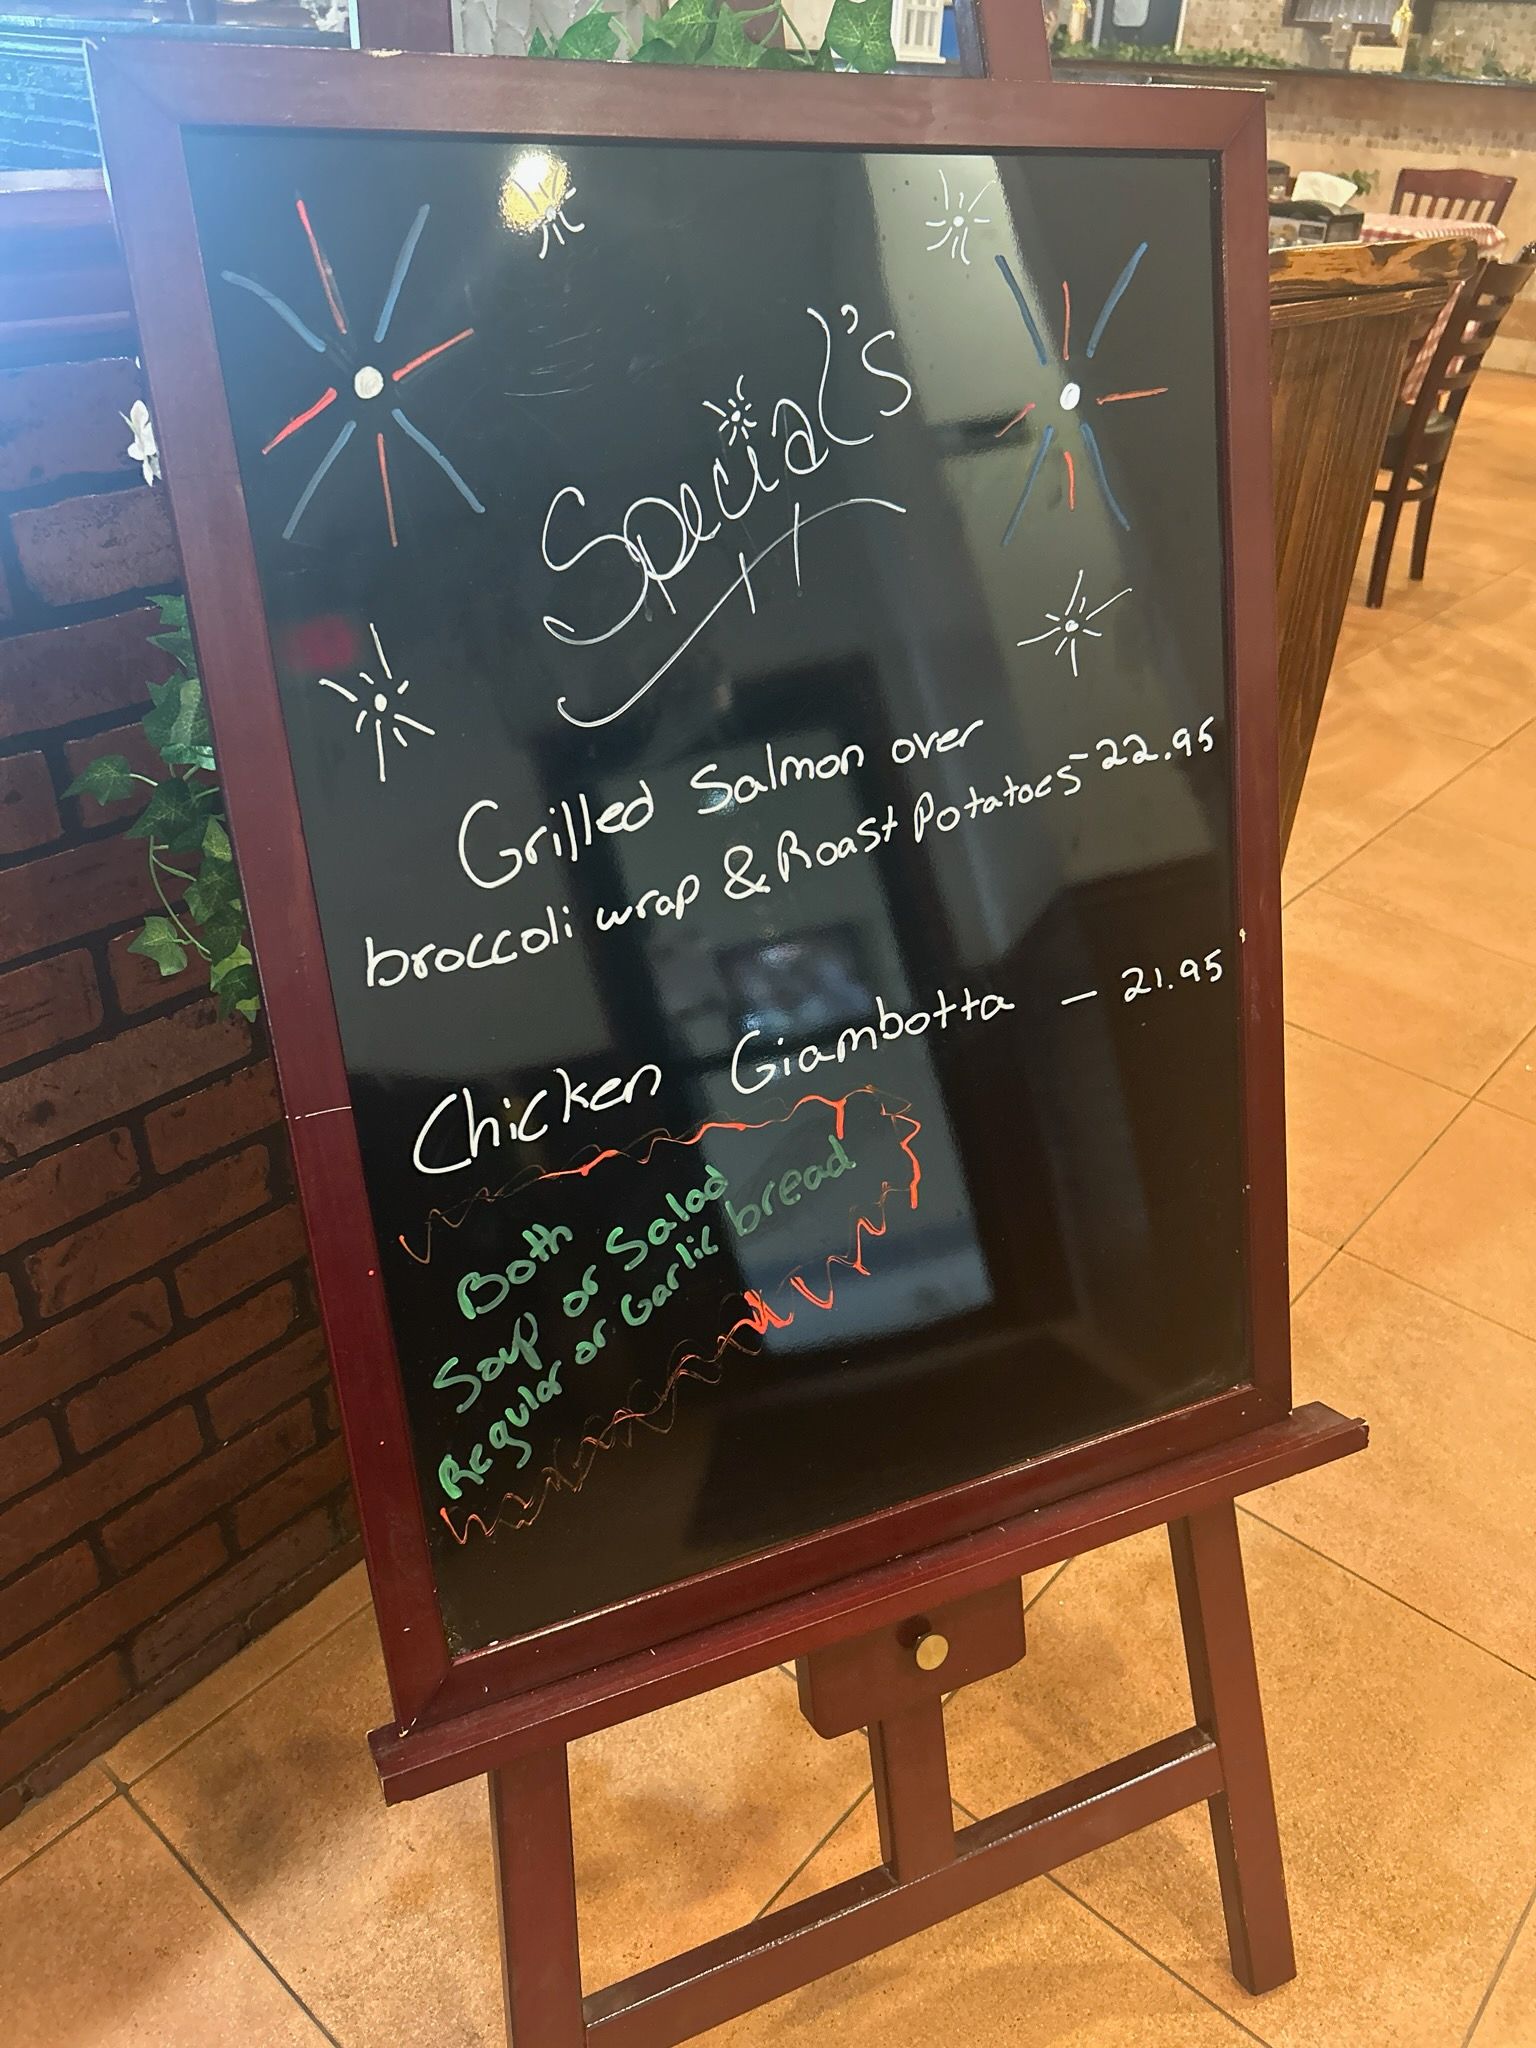 Special's
Grilled Salmon over
broccoli wrap & Roast Potatoes - 22.95
Chicken Giambotta - 21.95
Both
Soup or Salad
Regular or Garlic bread